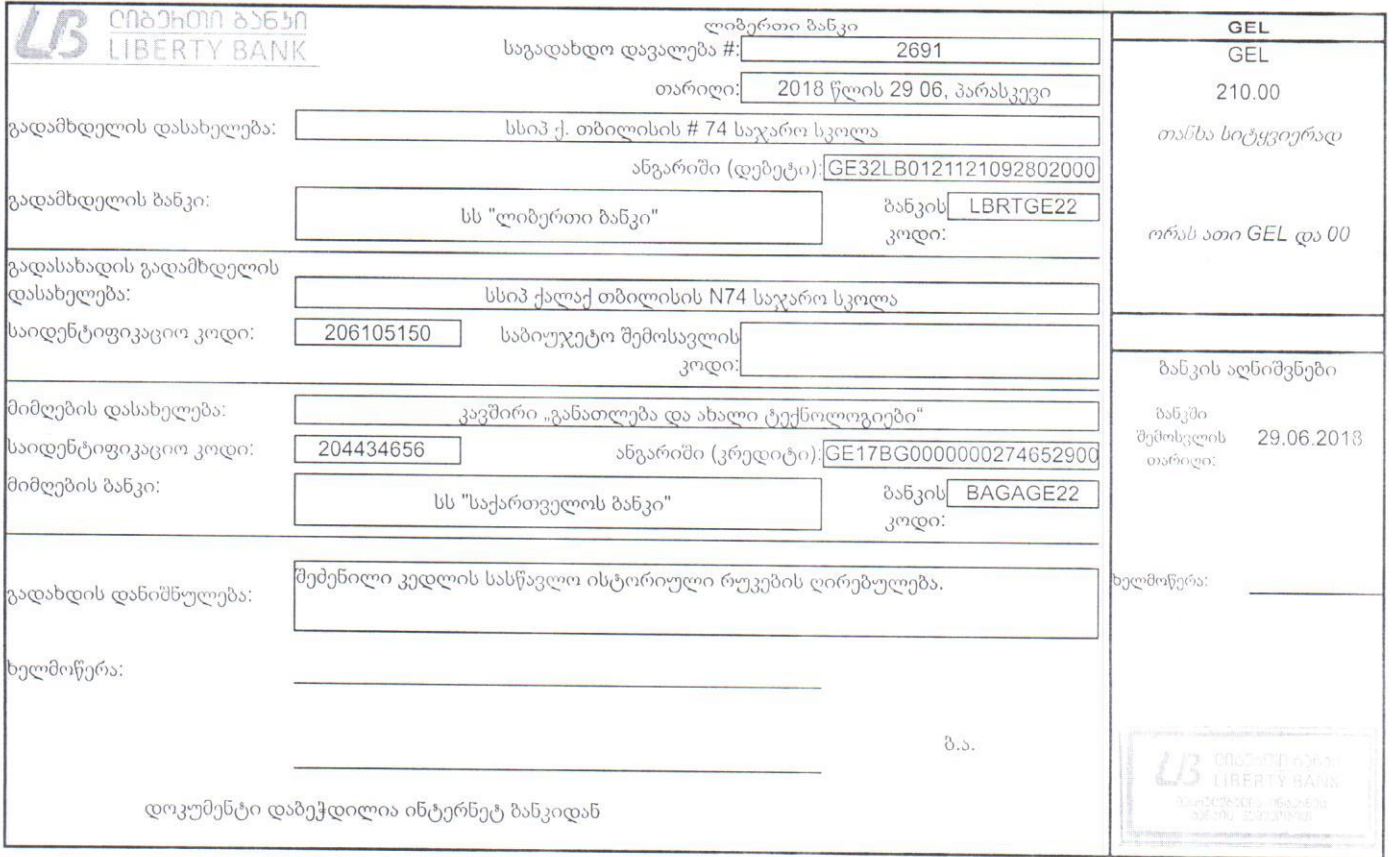 ლიბერთი ბანკი
LIBERTY BANK
ლიბერთი ბანკი
საგადახდო დავალება #: 2691
თარიღი: 2018 წლის 29 06, პარასკევი
გადამხდელის დასახელება: სსიპ ქ. თბილისის # 74 საჯარო სკოლა
ანგარიში (დებეტი): GE32LB0121121092802000
გადამხდელის ბანკი: სს "ლიბერთი ბანკი" ბანკის LBRTGE22
კოდი:
გადასახადის გადამხდელის
დასახელება: სსიპ ქალაქ თბილისის N74 საჯარო სკოლა
საიდენტიფიკაციო კოდი: 206105150 საბიუჯეტო შემოსავლის
კოდი:
მიმღების დასახელება: კავშირი „განათლება და ახალი ტექნოლოგიები“
საიდენტიფიკაციო კოდი: 204434656 ანგარიში (კრედიტი): GE17BG0000000274652900
მიმღების ბანკი: სს "საქართველოს ბანკი" ბანკის BAGAGE22
კოდი:
გადახდის დანიშნულება: შეძენილი კედლის სასწავლო ისტორიული რუკების ღირებულება.
ხელმოწერა:
ბ.ა.
დოკუმენტი დაბეჭდილია ინტერნეტ ბანკიდან
GEL
GEL
210.00
თანხა სიტყვიერად
ორას ათი GEL და 00
ბანკის აღნიშვნები
ბანკში
შემოსვლის 29.06.2018
თარიღი:
ხელმოწერა:
LB ლიბერთი ბანკი
LIBERTY BANK